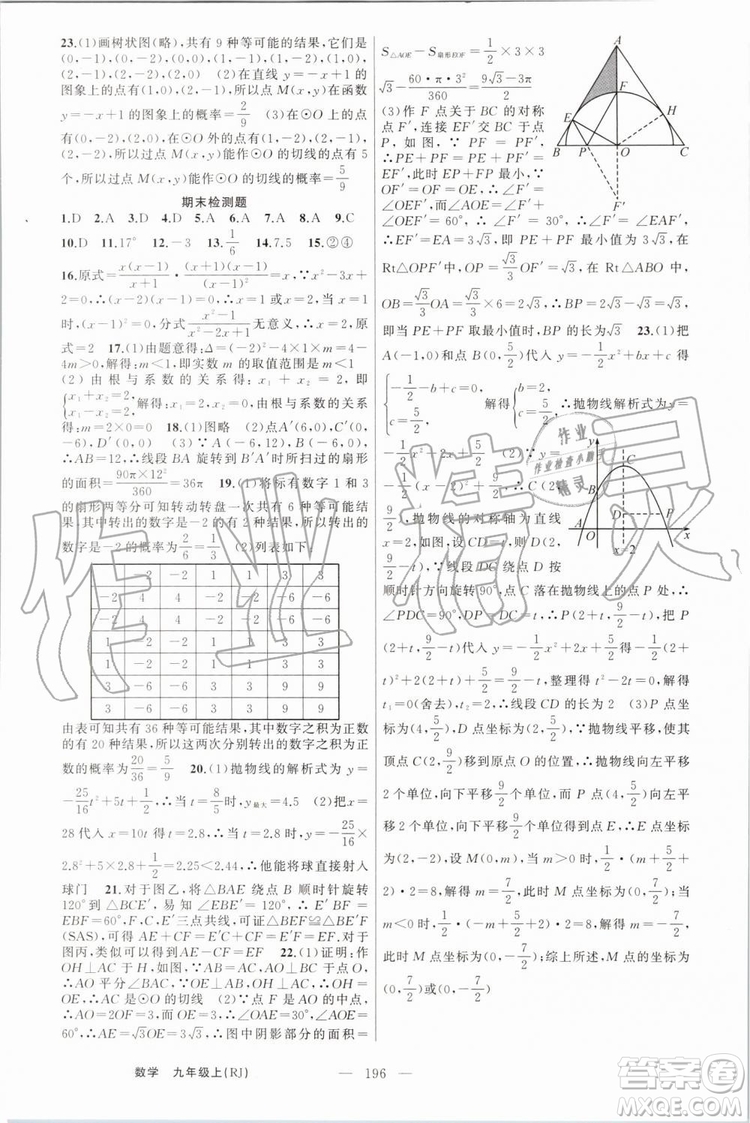 23.(1)画树状图(略),共有 9 种等可能的结果,它们是
(0,-1),(0,-2),(0,0),(1,-1),(1,-2),(1,0),
(2,-1),(2,-2),(2,0) (2)在直线 y=-x+1 的
图象上的点有(1,0),(2,-1),所以点 M(x,y)在函数
y=-x+1 的图象上的概率=2/9 (3)在⊙O 上的
点有(0,-2),(2,0),在⊙O 外的点有(1,-2),
(2,-1),(2,-2),所以过点 M(x,y)能作⊙O 的切线的点有 5
个,所以过点 M(x,y)能作⊙O 的切线的概率=5/9
期末检测题
1.D 2.A 3.D 4.D 5.A 6.B 7.A 8.A 9.C
10.D 11.17° 12.-3 13.1/6 14.7.5 15.②④
16.原式=x(x-1)/(x+1)·(x+1)(x-1)/(x-1)²=x,∵x²-3x+
2=0,∴(x-2)(x-1)=0,∴x=1或x=2,当x=1
时,(x-1)²=0,分式(x²-1)/(x²-2x+1)无意义,∴x=2,原
式=2 17.(1)由题意得:Δ=(-2)²-4×1×m=4-
4m>0,解得:m<1,即实数 m 的取值范围是 m<1
(2)由根与系数的关系得:x₁+x₂=2,即
{x₁+x₂=2, x₁-x₂=2,解得:x₁=2,x₂=0,由根与系数的关系得:
m=2×0=0 18.(1)图略 (2)点A′(6,0),C′(0,
-6),D′(0,0) (3)∵A(-6,0),B(6,0),
∴AB=12,∴线段 BA 旋转到 B′A′时所扫过的扇形
的面积=90π×12²/360=36π 19.(1)将标有数字 1 和 3
的扇形两等分可知转动转盘一次共有 6 种等可能的结
果,其中转出的数字是-2的有2种结果,所以转出的
数字是-2 的概率为2/6=1/3 (2)列表如下:
-2 -2 1 1 3 3
-2 4 4 -2 -2 -6 -6
-2 4 4 -2 -2 -6 -6
1 -2 -2 1 1 3 3
1 -2 -2 1 1 3 3
3 -6 -6 3 3 9 9
3 -6 -6 3 3 9 9
由表可知共有 36 种等可能结果,其中数字之积为正数
的有 20 种结果,所以这两次分别转出的数字之积为正
数的概率为20/36=5/9 20.(1)抛物线的解析式为 y=
-25/16t²+5t+1/2,∴当 t=8/5时,y最大=4.5 (2)把 x=
28 代入 x=10t,得 t=2.8,∴当 t=2.8 时,y=-25/16×
2.8²+5×2.8+1/2=2.25<2.44,∴他能将球直接射入
球门 21.对于图乙,将△BAE 绕点 B 顺时针旋转
120°到△BCE′,易知∠EBE′=120°,F,E′BF=
EBF=60°,F,C,E′三点共线,可证△BEF≌△BE′F
(SAS),可得 AE+CF=E′C+CF=E′F=EF.对于
图丙,类似可以得到 AE-CF=EF 22.(1)证明:作
OH⊥AC于点H,∵AB=AC,AO⊥BC,∴AO平分
∠BAC,∵OE⊥AB,OH⊥AC,∴OH=OE,
∴AC是⊙O的切线 (2)∵点F是AO的中点,
∴AO=2OF=6,而OE=3,∴∠OAE=30°,∠AOE=
60°,∴AE=√3OE=3√3,∴图中阴影部分的面积=
S△AOE-S扇形EOF=1/2×3×3
√3-60·π·3²/360=(9√3-3π)/2
(3)作 F 点关于 BC 的对称
点 F′,连接 EF′交 BC 于点
P,如图,∵PF=PF′,
∴PE+PF=PE+PF′=
EF′,此时 EP+FP 最小,∵
OF′=OF=OE,∴∠F′=
∠OEF′,而∠AOE=∠F′+
∠OEF′=60°,∴∠F′=30°,∴∠F′=∠EAF′,∴
EF′=EA=3√3,即 PE+PF 最小值为 3√3,在
Rt△OPF′中,OP=√3/3OF′=√3,在 Rt△ABO 中,
OB=√3/3OA=√3/3×6=2√3,∴BP=2√3-√3=√3,
即当 PE+PF 取最小值时,BP 的长为√3 23.(1)把
A(-1,0)和点 B(0,5/2)代入 y=-1/2x²+bx+c 得
{-1/2-b+c=0, c=5/2, 解得{b=2, c=5/2,∴抛物线解析式为 y=
-1/2x²+2x+5/2 (2)∵y=
-1/2(x-2)²+9/2,∴C(2,
9/2),抛物线的对称轴为直线
x=2,如图,设 CD=t,则D(2,
9/2-t),∵线段 DC 绕点 D 按
顺时针方向旋转90°,点 C 落在抛物线上的点 P 处,
∴∠PDC=90°,DP=DC=t,∴P(2+t,9/2-t),把 P
(2+t,9/2-t)代入 y=-1/2x²+2x+5/2得-1/2(2+
t)²+2(2+t)+5/2=9/2-t,整理得 t²-2t=0,解得
t₁=0(舍去),t₂=2,∴线段 CD 的长为 2 (3)P 点坐
标为(4,5/2),D 点坐标为(2,5/2),∵抛物线平移,使其
顶点 C(2,9/2)移到原点 O 的位置,∴抛物线向左平移
2 个单位,向下平移9/2个单位,而 P 点(4,5/2)向左平移
2 个单位,向下平移9/2个单位得到点 E,∴E 点坐标为
(2,-2),设 M(0,m),当 m>0 时,1/2·(m+5/2
+2)·2=8,解得 m=7/2,此时 M 点坐标为(0,7/2);当
m<0 时,1/2·(-m+5/2+2)·2=8,解得 m=-7/2,
此时 M 点坐标为(0,-7/2);综上所述,M 点坐标为
(0,7/2)或(0,-7/2)
A
F
E
H
B
P
O
C
F′
y
C
D
P
O
x=2
x
作业精灵
作业检查小助手
精灵
数学 九年级上(RJ) — 196 —